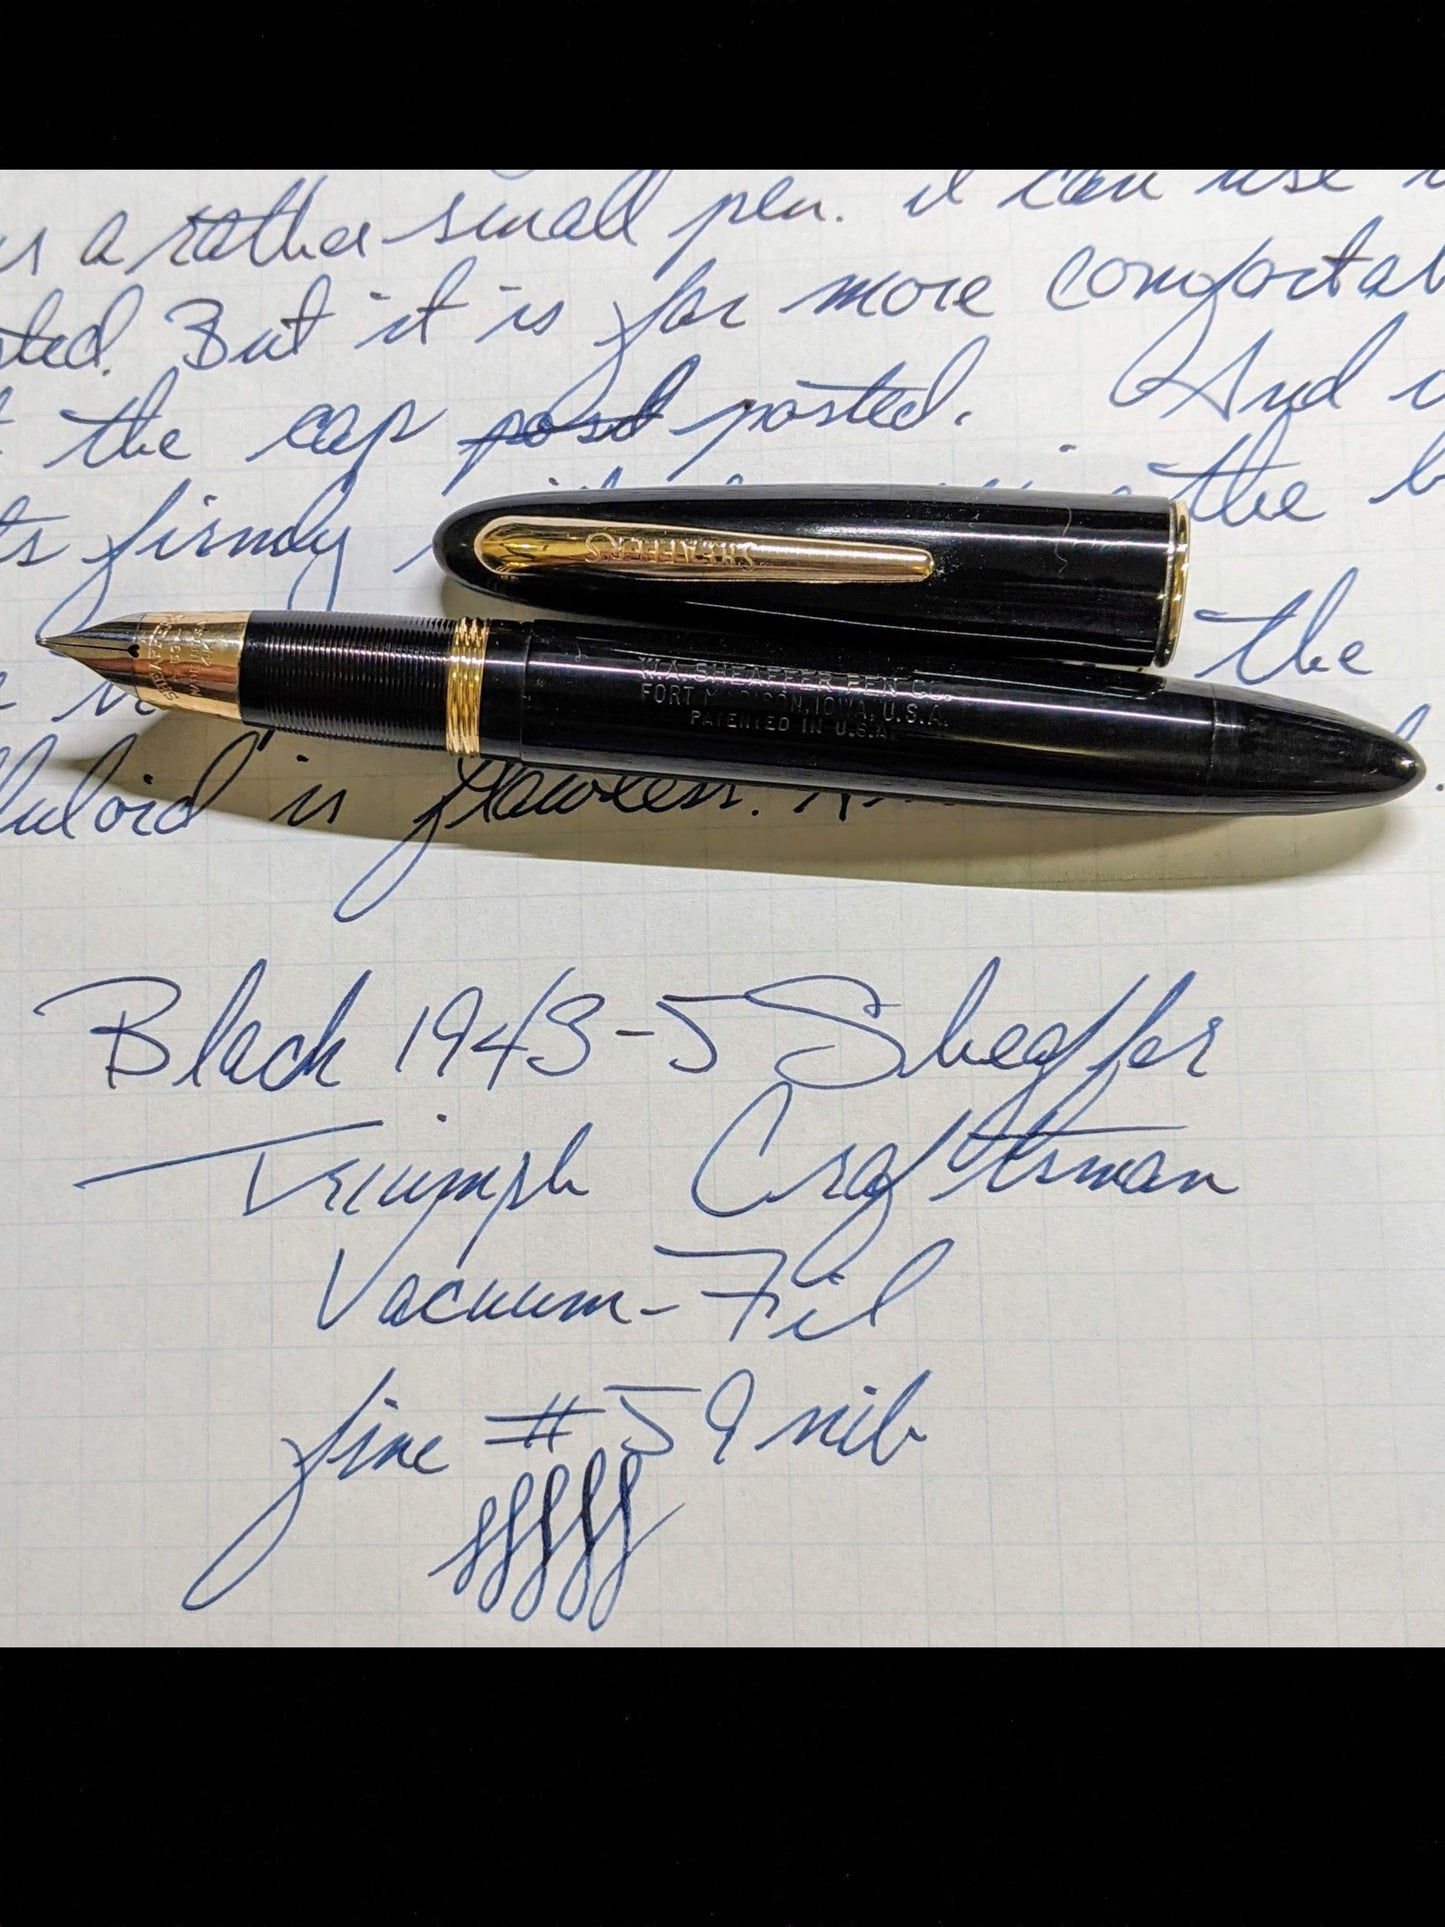 is a rather small pen. it can use
sted. But it is far more comfortab
the cap post posted. And
ts firmly the b
the
luloid is flawless.
SHEAFFER'S
W.A. SHEAFFER PEN CO.
FORT MADISON, IOWA, U.S.A.
PATENTED IN U.S.A.
SHEAFFER'S
Black 1943-5 Sheaffer
Triumph Craftsman
Vacuum-Fil
fine #59 nib